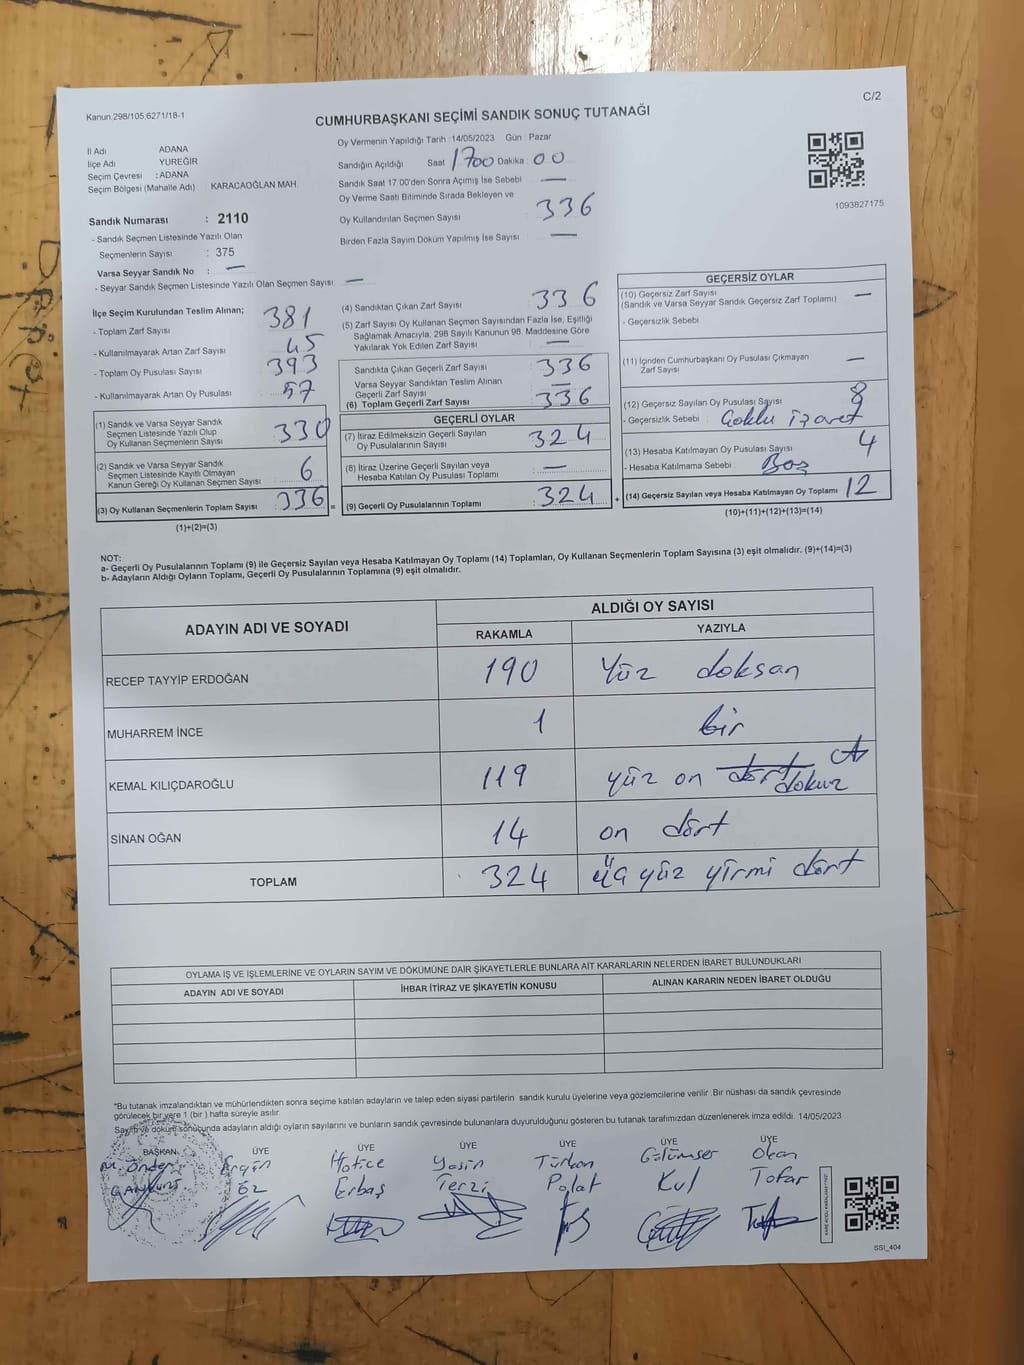 C/2
Kanun:298/105,6271/18-1
CUMHURBAŞKANI SEÇİMİ SANDIK SONUÇ TUTANAĞI
İl Adı : ADANA
İlçe Adı YUREĞİR
Seçim Çevresi : ADANA
Seçim Bölgesi (Mahalle Adı) KARACAOĞLAN MAH.
Sandık Numarası : 2110
- Sandık Seçmen Listesinde Yazılı Olan
Seçmenlerin Sayısı : 375
Varsa Seyyar Sandık No : —
- Seyyar Sandık Seçmen Listesinde Yazılı Olan Seçmen Sayısı : —
Oy Vermenin Yapıldığı Tarih : 14/05/2023 Gün : Pazar
Sandığın Açıldığı Saat 1700 Dakika : 00
Sandık Saat 17.00'den Sonra Açımış İse Sebebi : —
Oy Verme Saati Bitiminde Sırada Bekleyen ve
Oy Kullandırılan Seçmen Sayısı : 336
Birden Fazla Sayım Döküm Yapılmış İse Sayısı : —
1093827175
İlçe Seçim Kurulundan Teslim Alınan;
- Toplam Zarf Sayısı 381
- Kullanılmayarak Artan Zarf Sayısı 45
- Toplam Oy Pusulası Sayısı 393
- Kullanılmayarak Artan Oy Pusulası 57
(1) Sandık ve Varsa Seyyar Sandık
Seçmen Listesinde Yazılı Olup
Oy Kullanan Seçmenlerin Sayısı 330
(2) Sandık ve Varsa Seyyar Sandık
Seçmen Listesinde Kayıtlı Olmayan
Kanun Gereği Oy Kullanan Seçmen Sayısı : 6
(3) Oy Kullanan Seçmenlerin Toplam Sayısı : 336 =
(1)+(2)=(3)
(4) Sandıktan Çıkan Zarf Sayısı 336
(5) Zarf Sayısı Oy Kullanan Seçmen Sayısından Fazla İse, Eşitliği
Sağlamak Amacıyla; 298 Sayılı Kanunun 98. Maddesine Göre
Yakılarak Yok Edilen Zarf Sayısı —
Sandıkta Çıkan Geçerli Zarf Sayısı 336
Varsa Seyyar Sandıktan Teslim Alınan
Geçerli Zarf Sayısı —
(6) Toplam Geçerli Zarf Sayısı 336
GEÇERLİ OYLAR
(7) İtiraz Edilmeksizin Geçerli Sayılan
Oy Pusulalarının Sayısı 324
(8) İtiraz Üzerine Geçerli Sayılan veya
Hesaba Katılan Oy Pusulası Toplamı —
(9) Geçerli Oy Pusulalarının Toplamı : 324 +
GEÇERSİZ OYLAR
(10) Geçersiz Zarf Sayısı
(Sandık ve Varsa Seyyar Sandık Geçersiz Zarf Toplamı) —
- Geçersizlik Sebebi :
(11) İçinden Cumhurbaşkanı Oy Pusulası Çıkmayan
Zarf Sayısı —
(12) Geçersiz Sayılan Oy Pusulası Sayısı 8
- Geçersizlik Sebebi : Çoklu işaret
(13) Hesaba Katılmayan Oy Pusulası Sayısı 4
- Hesaba Katılmama Sebebi : Boş
(14) Geçersiz Sayılan veya Hesaba Katılmayan Oy Toplamı : 12
(10)+(11)+(12)+(13)=(14)
NOT:
a- Geçerli Oy Pusulalarının Toplamı (9) ile Geçersiz Sayılan veya Hesaba Katılmayan Oy Toplamı (14) Toplamları, Oy Kullanan Seçmenlerin Toplam Sayısına (3) eşit olmalıdır. (9)+(14)=(3)
b- Adayların Aldığı Oyların Toplamı, Geçerli Oy Pusulalarının Toplamına (9) eşit olmalıdır.
ADAYIN ADI VE SOYADI ALDIĞI OY SAYISI
RAKAMLA YAZIYLA
RECEP TAYYİP ERDOĞAN 190 Yüz doksan
MUHARREM İNCE 1 bir
KEMAL KILIÇDAROĞLU 119 yüz on dört dokuz
SİNAN OĞAN 14 on dört
TOPLAM 324 üç yüz yirmi dört
OYLAMA İŞ VE İŞLEMLERİNE VE OYLARIN SAYIM VE DÖKÜMÜNE DAİR ŞİKAYETLERLE BUNLARA AİT KARARLARIN NELERDEN İBARET BULUNDUKLARI
ADAYIN ADI VE SOYADI İHBAR İTİRAZ VE ŞİKAYETİN KONUSU ALINAN KARARIN NEDEN İBARET OLDUĞU
*Bu tutanak imzalandıktan ve mühürlendikten sonra seçime katılan adayların ve talep eden siyasi partilerin sandık kurulu üyelerine veya gözlemcilerine verilir. Bir nüshası da sandık çevresinde
görülecek bir yere 1 (bir ) hafta süreyle asılır.
Sayım ve döküm sonucunda adayların aldığı oyların sayılarını ve bunların sandık çevresinde bulunanlara duyurulduğunu gösteren bu tutanak tarafımızdan düzenlenerek imza edildi. 14/05/2023
BAŞKAN ÜYE ÜYE ÜYE ÜYE ÜYE ÜYE
M. Önder Ergin Hatice Yasin Türkan Gülümser Okan
Öz Erbaş Terzi Polat Kul Tofar
SSI_404